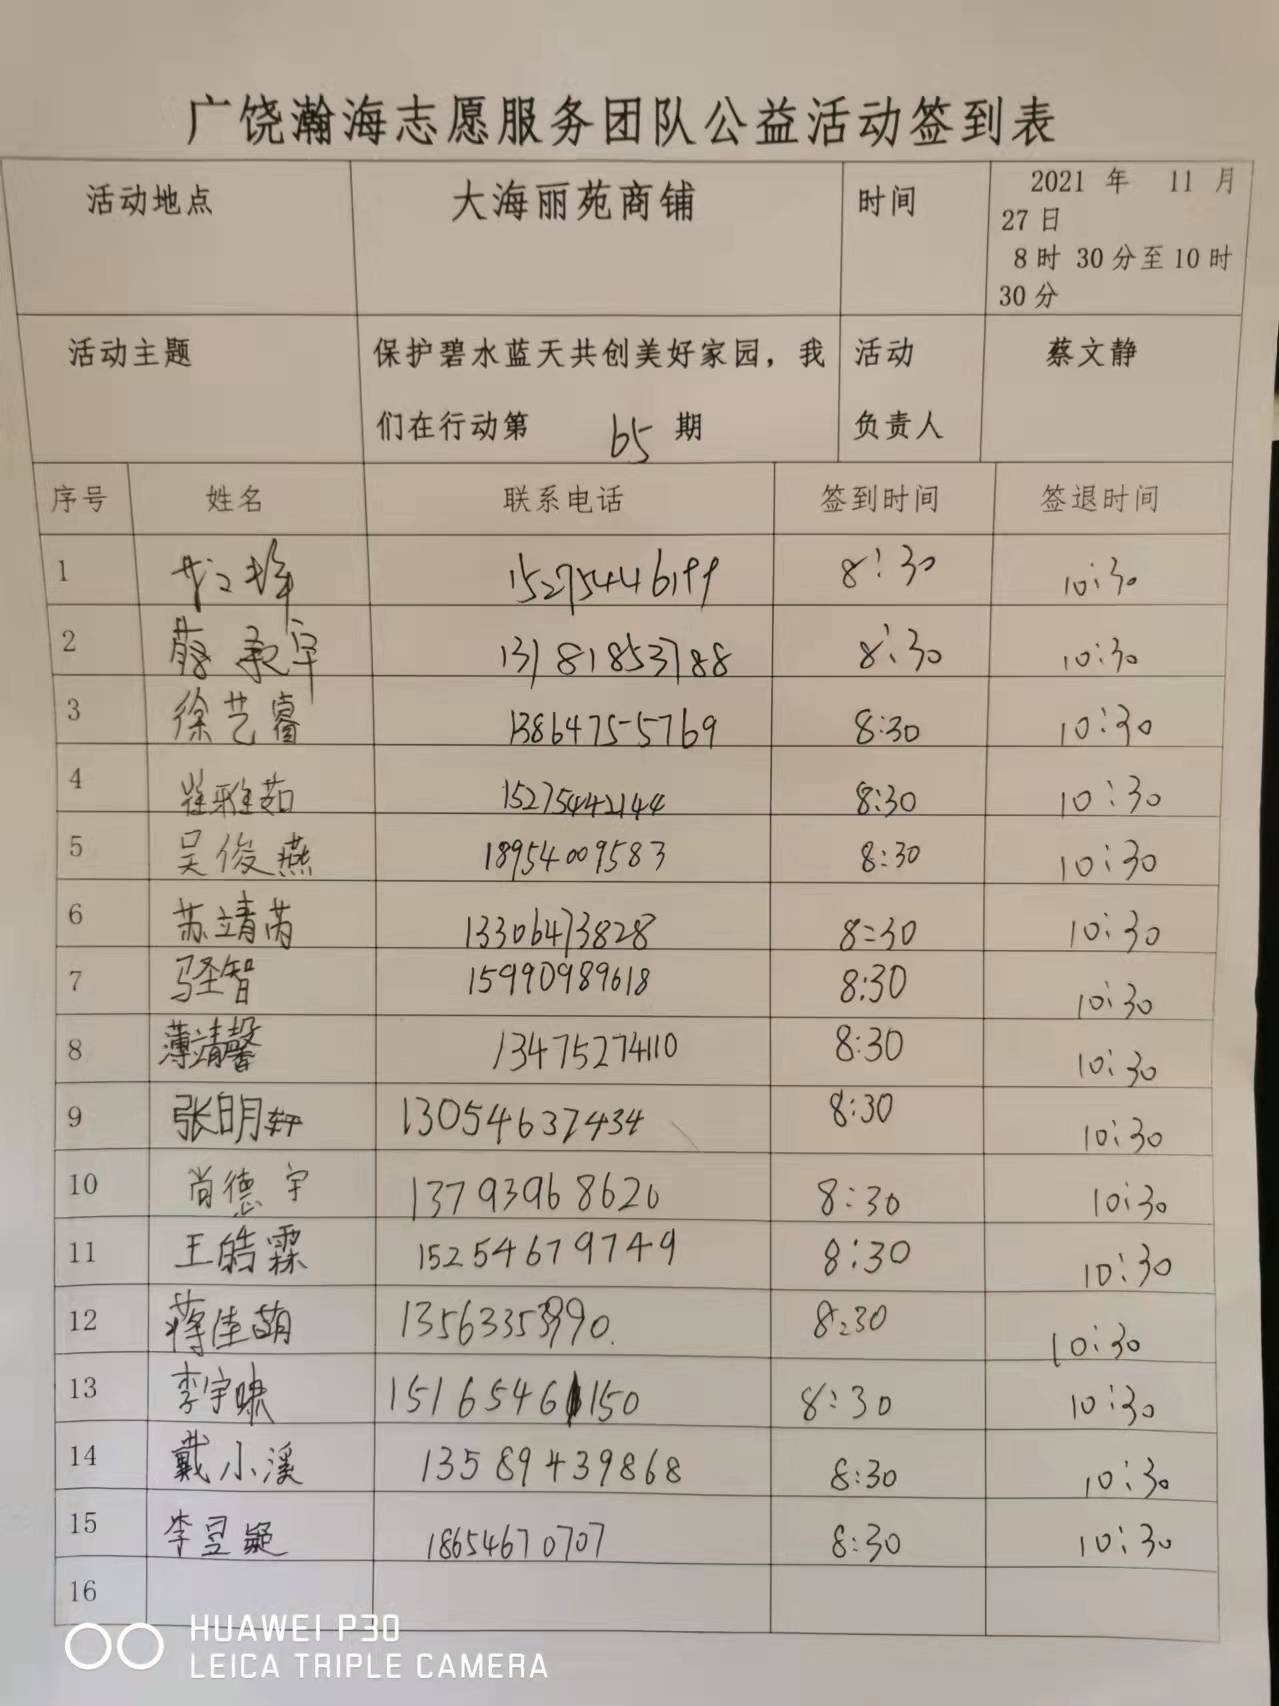 广饶瀚海志愿服务团队公益活动签到表
活动地点 大海丽苑商铺 时间 2021 年 11 月 27 日 8 时 30 分至 10 时 30 分
活动主题 保护碧水蓝天共创美好家园，我们在行动第 65 期 活动负责人 蔡文静
序号 姓名 联系电话 签到时间 签退时间
1 15275446199 8:30 10:30
2 13181853788 8:30 10:30
3 徐艺睿 13864755769 8:30 10:30
4 崔雅茹 15275442144 8:30 10:30
5 吴俊燕 18954009583 8:30 10:30
6 苏靖芮 13306473828 8:30 10:30
7 智 15990989618 8:30 10:30
8 薄靖馨 13475274110 8:30 10:30
9 张明轩 13054637434 8:30 10:30
10 尚德宇 13793968620 8:30 10:30
11 王皓霖 15254679749 8:30 10:30
12 蒋佳萌 8:30 10:30
13 李宇 15165461150 8:30 10:30
14 戴小溪 13589439868 8:30 10:30
15 李昱 18654670707 8:30 10:30
16
HUAWEI P30
LEICA TRIPLE CAMERA